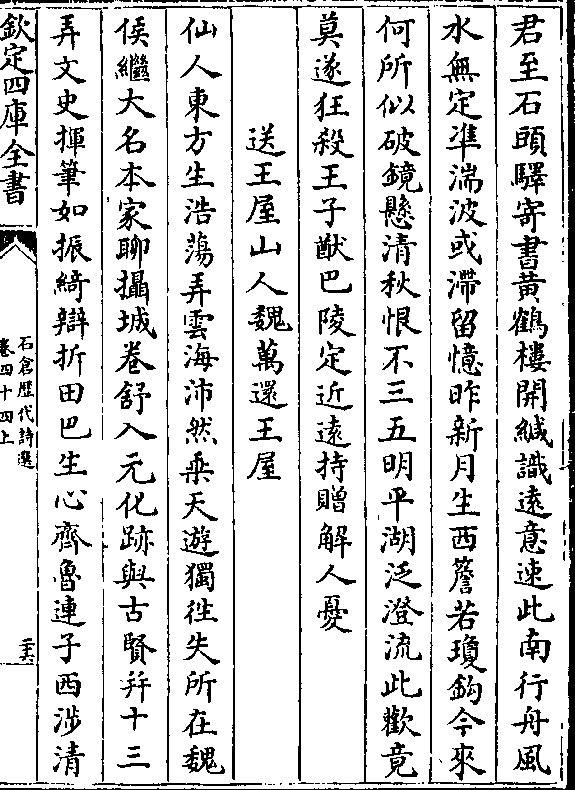 君至石頭驛寄書黃鶴樓開緘識遠意速此南行舟風
水無定準湍波或滯留憶昨新月生西簷若瓊鈎今來
何所似破鏡懸清秋恨不三五明平湖泛澄流此歡竟
莫遂狂殺王子猷巴陵定近遠持贈解人憂
送王屋山人魏萬還王屋
仙人東方生浩蕩弄雲海沛然乗天遊獨徃失所在魏
侯繼大名本家聊攝城卷舒入元化跡與古賢并十三
弄文史揮筆如振綺辯折田巴生心齊魯連子西涉清
欽定四庫全書
石倉歷代詩選
卷四十四上
二六